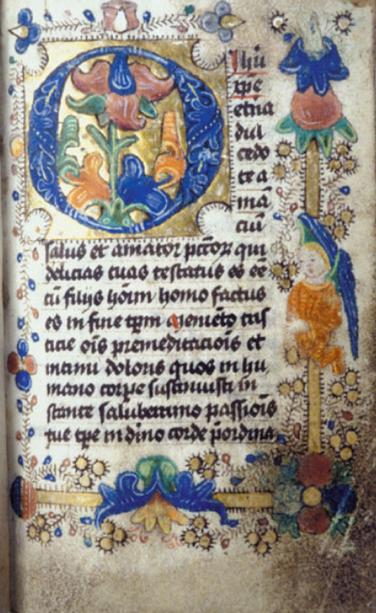 O Jhu
xpe
etna
dul
cedo
te a
mā
ciū
salus et amator pctoꝝ qui
delicias tuas testatus es ee
cū filijs hōim homo factus
es in fine tpm memēto tris
ticie oīs premeditacioīs et
intimi doloris quos in hu,
mano corpe sustinuisti in
stante saluberrimo passiois
tue tpe in dino corde pordina